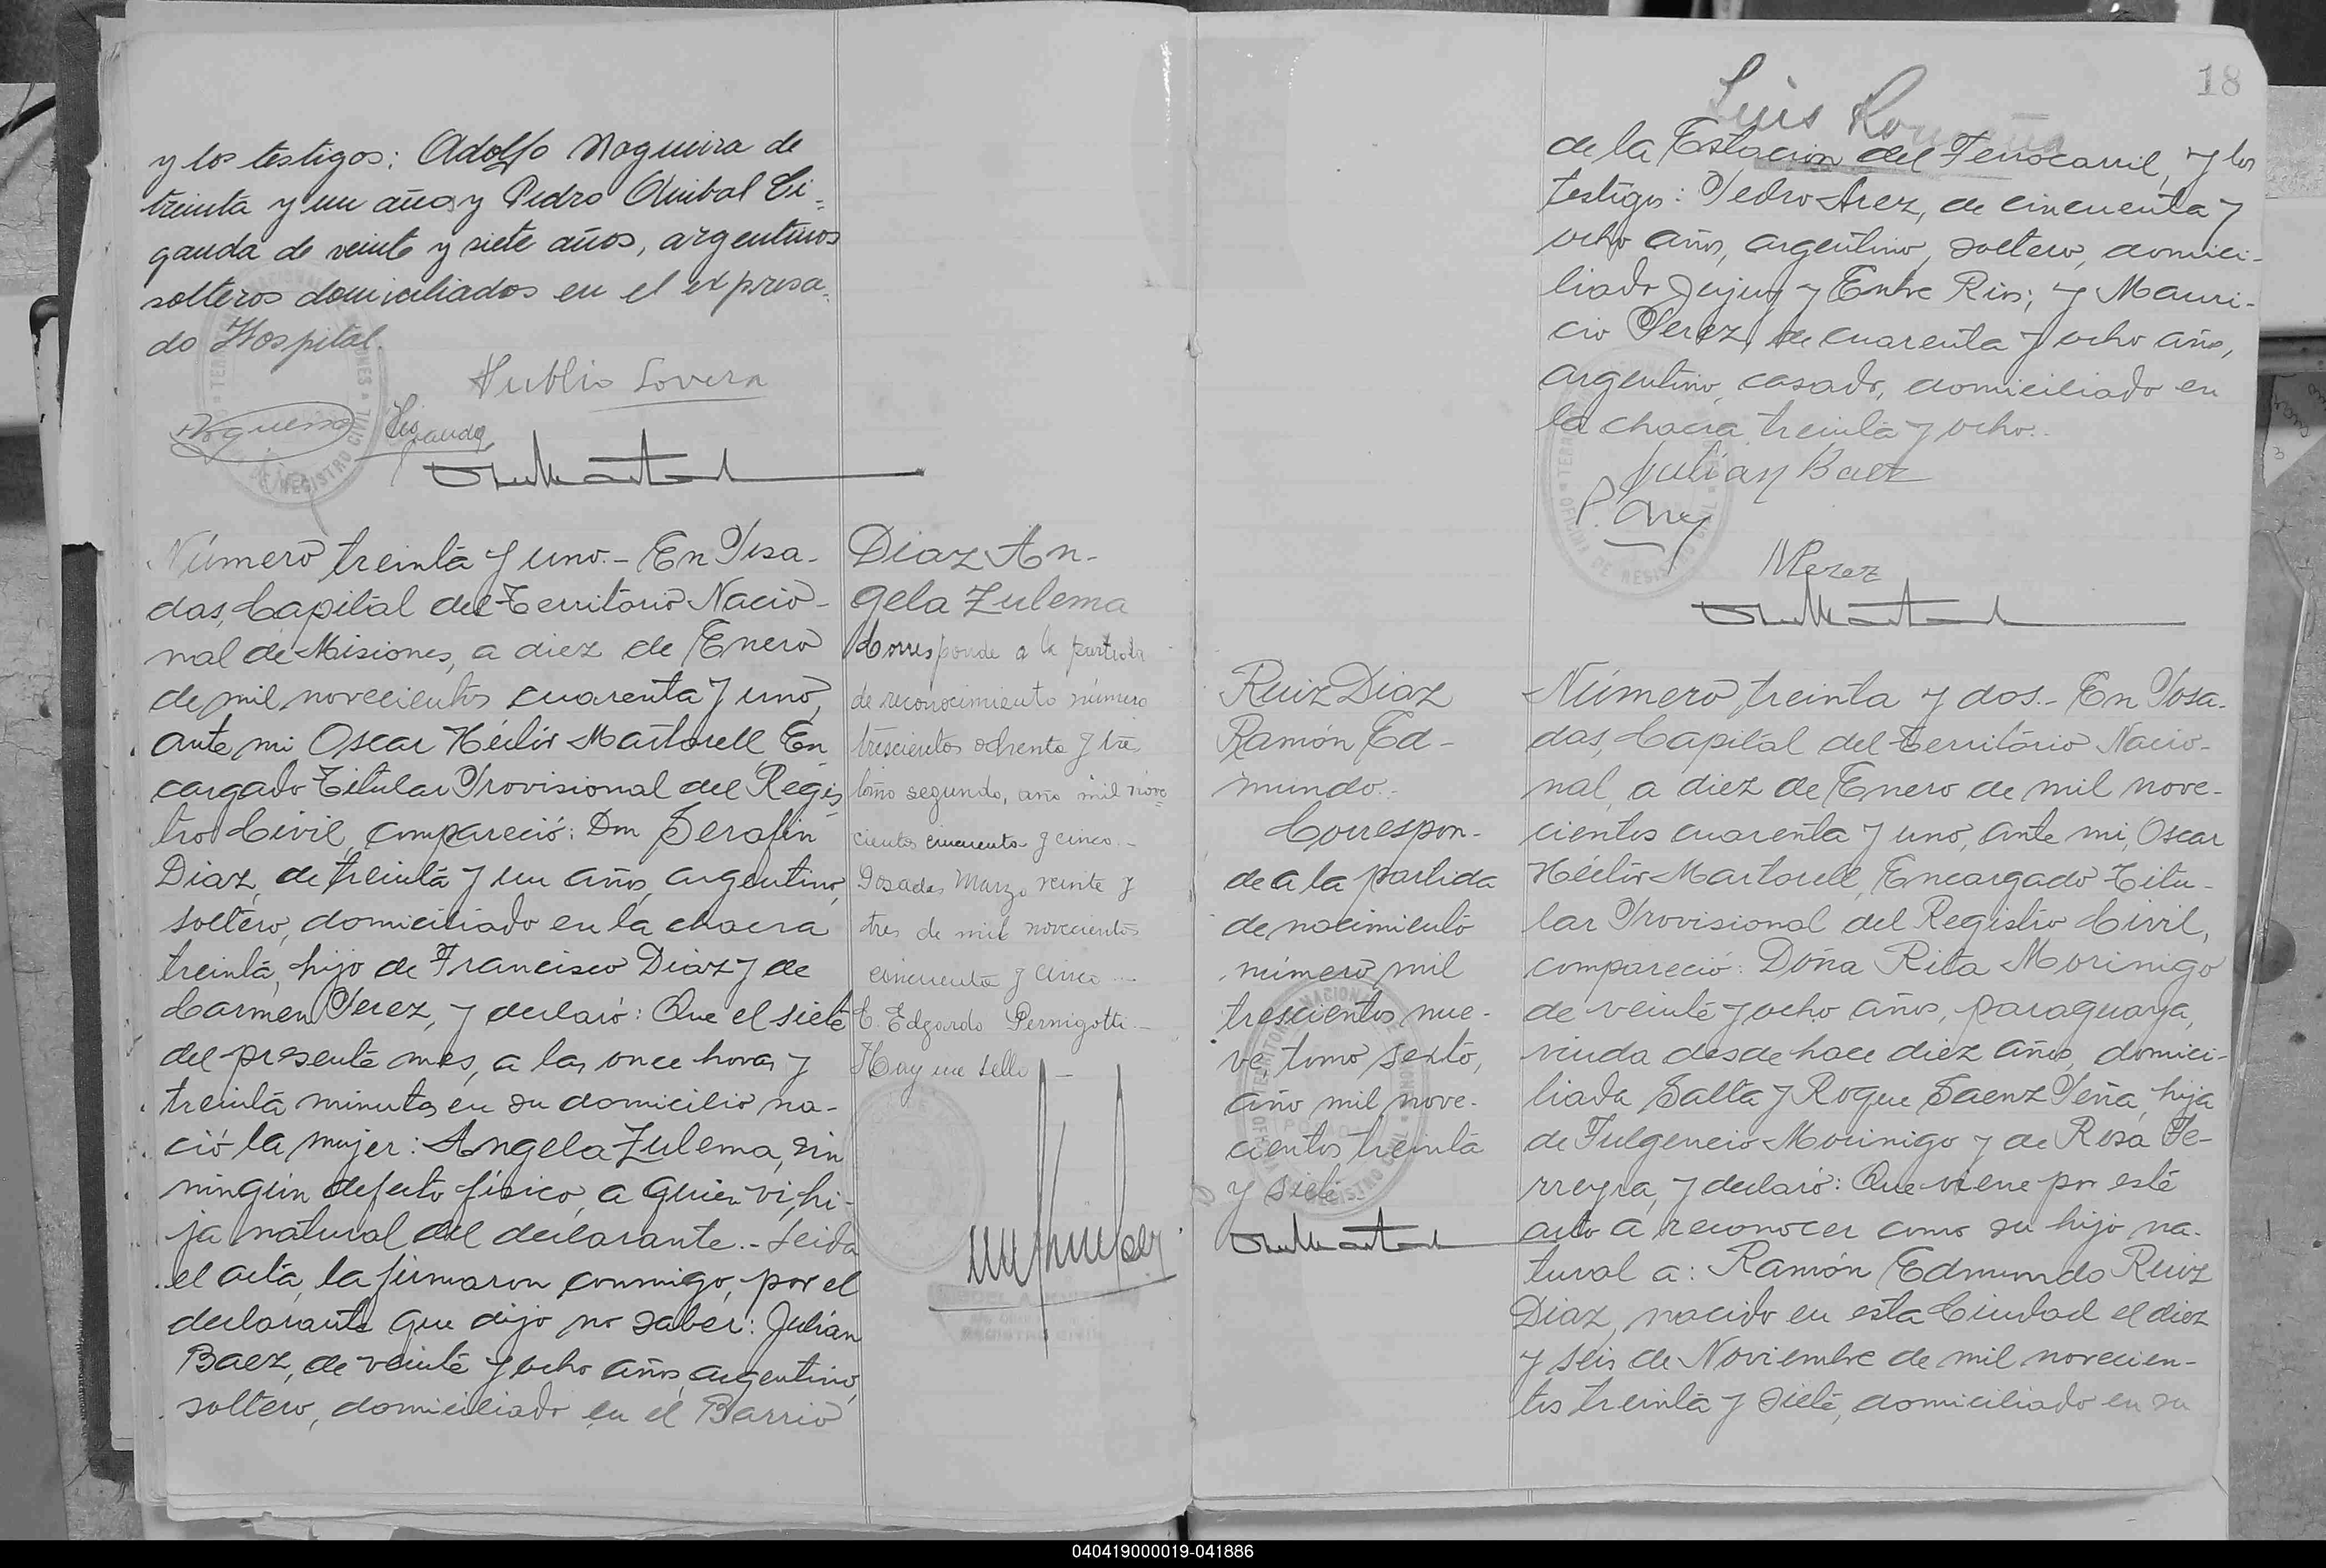 y los testigos: Adolfo Nogueira de
treinta y un años y Pedro Anibal Ci-
gauda de veinte y siete años, argentinos
solteros domiciliados en el expresa-
do Hospital.
Publio Lovera
Nogueira
Cigauda
Número treinta y uno.- En Posa-
das, Capital del Territorio Nacio-
nal de Misiones, a diez de Enero
de mil novecientos cuarenta y uno,
ante mi Oscar Héctor Martorell, En
cargado Titular Provisional del Regis
tro Civil, compareció: Don Serafin
Diaz, de treinta y un años, argentino,
soltero, domiciliado en la chacra
treinta, hijo de Francisco Diaz y de
Carmen Perez, y declaró: Que el siete
del presente mes, a las once horas y
treinta minutos en su domicilio na-
ció la mujer: Angela Zulema, sin
ningún defecto físico, a quien vi, hi-
ja natural del declarante.- Leida
el acta, la firmaron conmigo, por el
declarante que dijo no saber: Julián
Baez, de veinte y ocho años, argentino,
soltero, domiciliado en el Barrio
Diaz An-
gela Zulema
Corresponde a la partida
de reconocimiento número
trescientos ochenta y tres
tomo segundo, año mil nove
cientos cincuenta y cinco.-
Posadas, Marzo veinte y
tres de mil novecientos
cincuenta y cinco ....
C. Edgardo Pernigotti -
Hay un sello -
REGISTRO CIVIL
18
Luis
de la Estacion del Ferrocarril, y los
testigos: Pedro Arez, de cincuenta y
ocho años, argentino, soltero, domici-
liado Jujuy y Entre Rios; y Mauri-
cio Perez, de cuarenta y ocho años,
argentino, casado, domiciliado en
la chacra treinta y ocho.-
Julian Baez
P. Arez
MPerez
Ruiz Diaz
Ramón Ed-
mundo.-
Correspon-
de a la partida
de nacimiento
número mil
trescientos nue-
ve, tomo sexto,
año mil nove-
cientos treinta
y siete
Número treinta y dos.- En Posa-
das, Capital del Territorio Nacio-
nal, a diez de Enero de mil nove-
cientos cuarenta y uno, ante mi, Oscar
Héctor Martorell, Encargado Titu-
lar Provisional del Registro Civil,
compareció: Doña Rita Morinigo
de veinte y ocho años, paraguaya,
viuda desde hace diez años, domici-
liada Salta y Roque Saenz Peña, hija
de Fulgencio Morinigo y de Rosa Fe-
rreyra, y declaró: Que viene por este
acto a reconocer como su hijo na-
tural a: Ramón Edmundo Ruiz
Diaz, nacido en esta Ciudad el diez
y seis de Noviembre de mil novecien-
tos treinta y siete, domiciliado en su
040419000019-041886